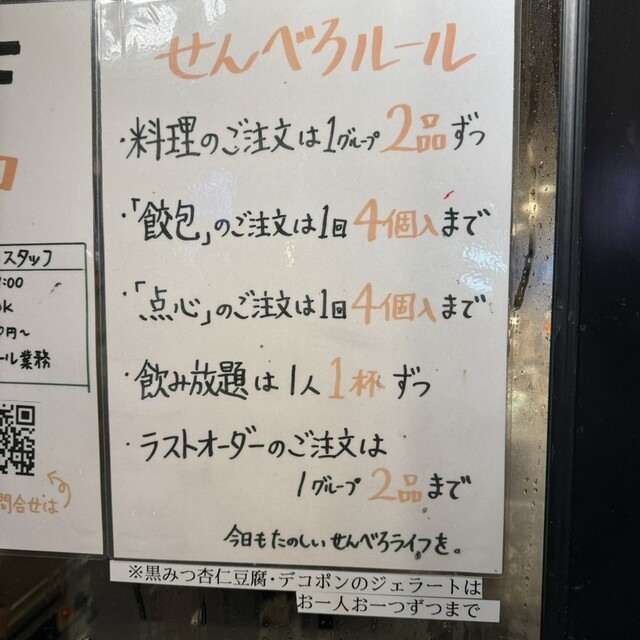 せんべろルール
・料理のご注文は1グループ2品ずつ
・「餃包」のご注文は1回4個入まで
・「点心」のご注文は1回4個入まで
・飲み放題は1人1杯ずつ
・ラストオーダーのご注文は
1グループ2品まで
今日もたのしいせんべろライフを。
※黒みつ杏仁豆腐・デコポンのジェラートは
お一人お一つずつまで
スタッフ
:00
OK
円～
ール業務
問合せは